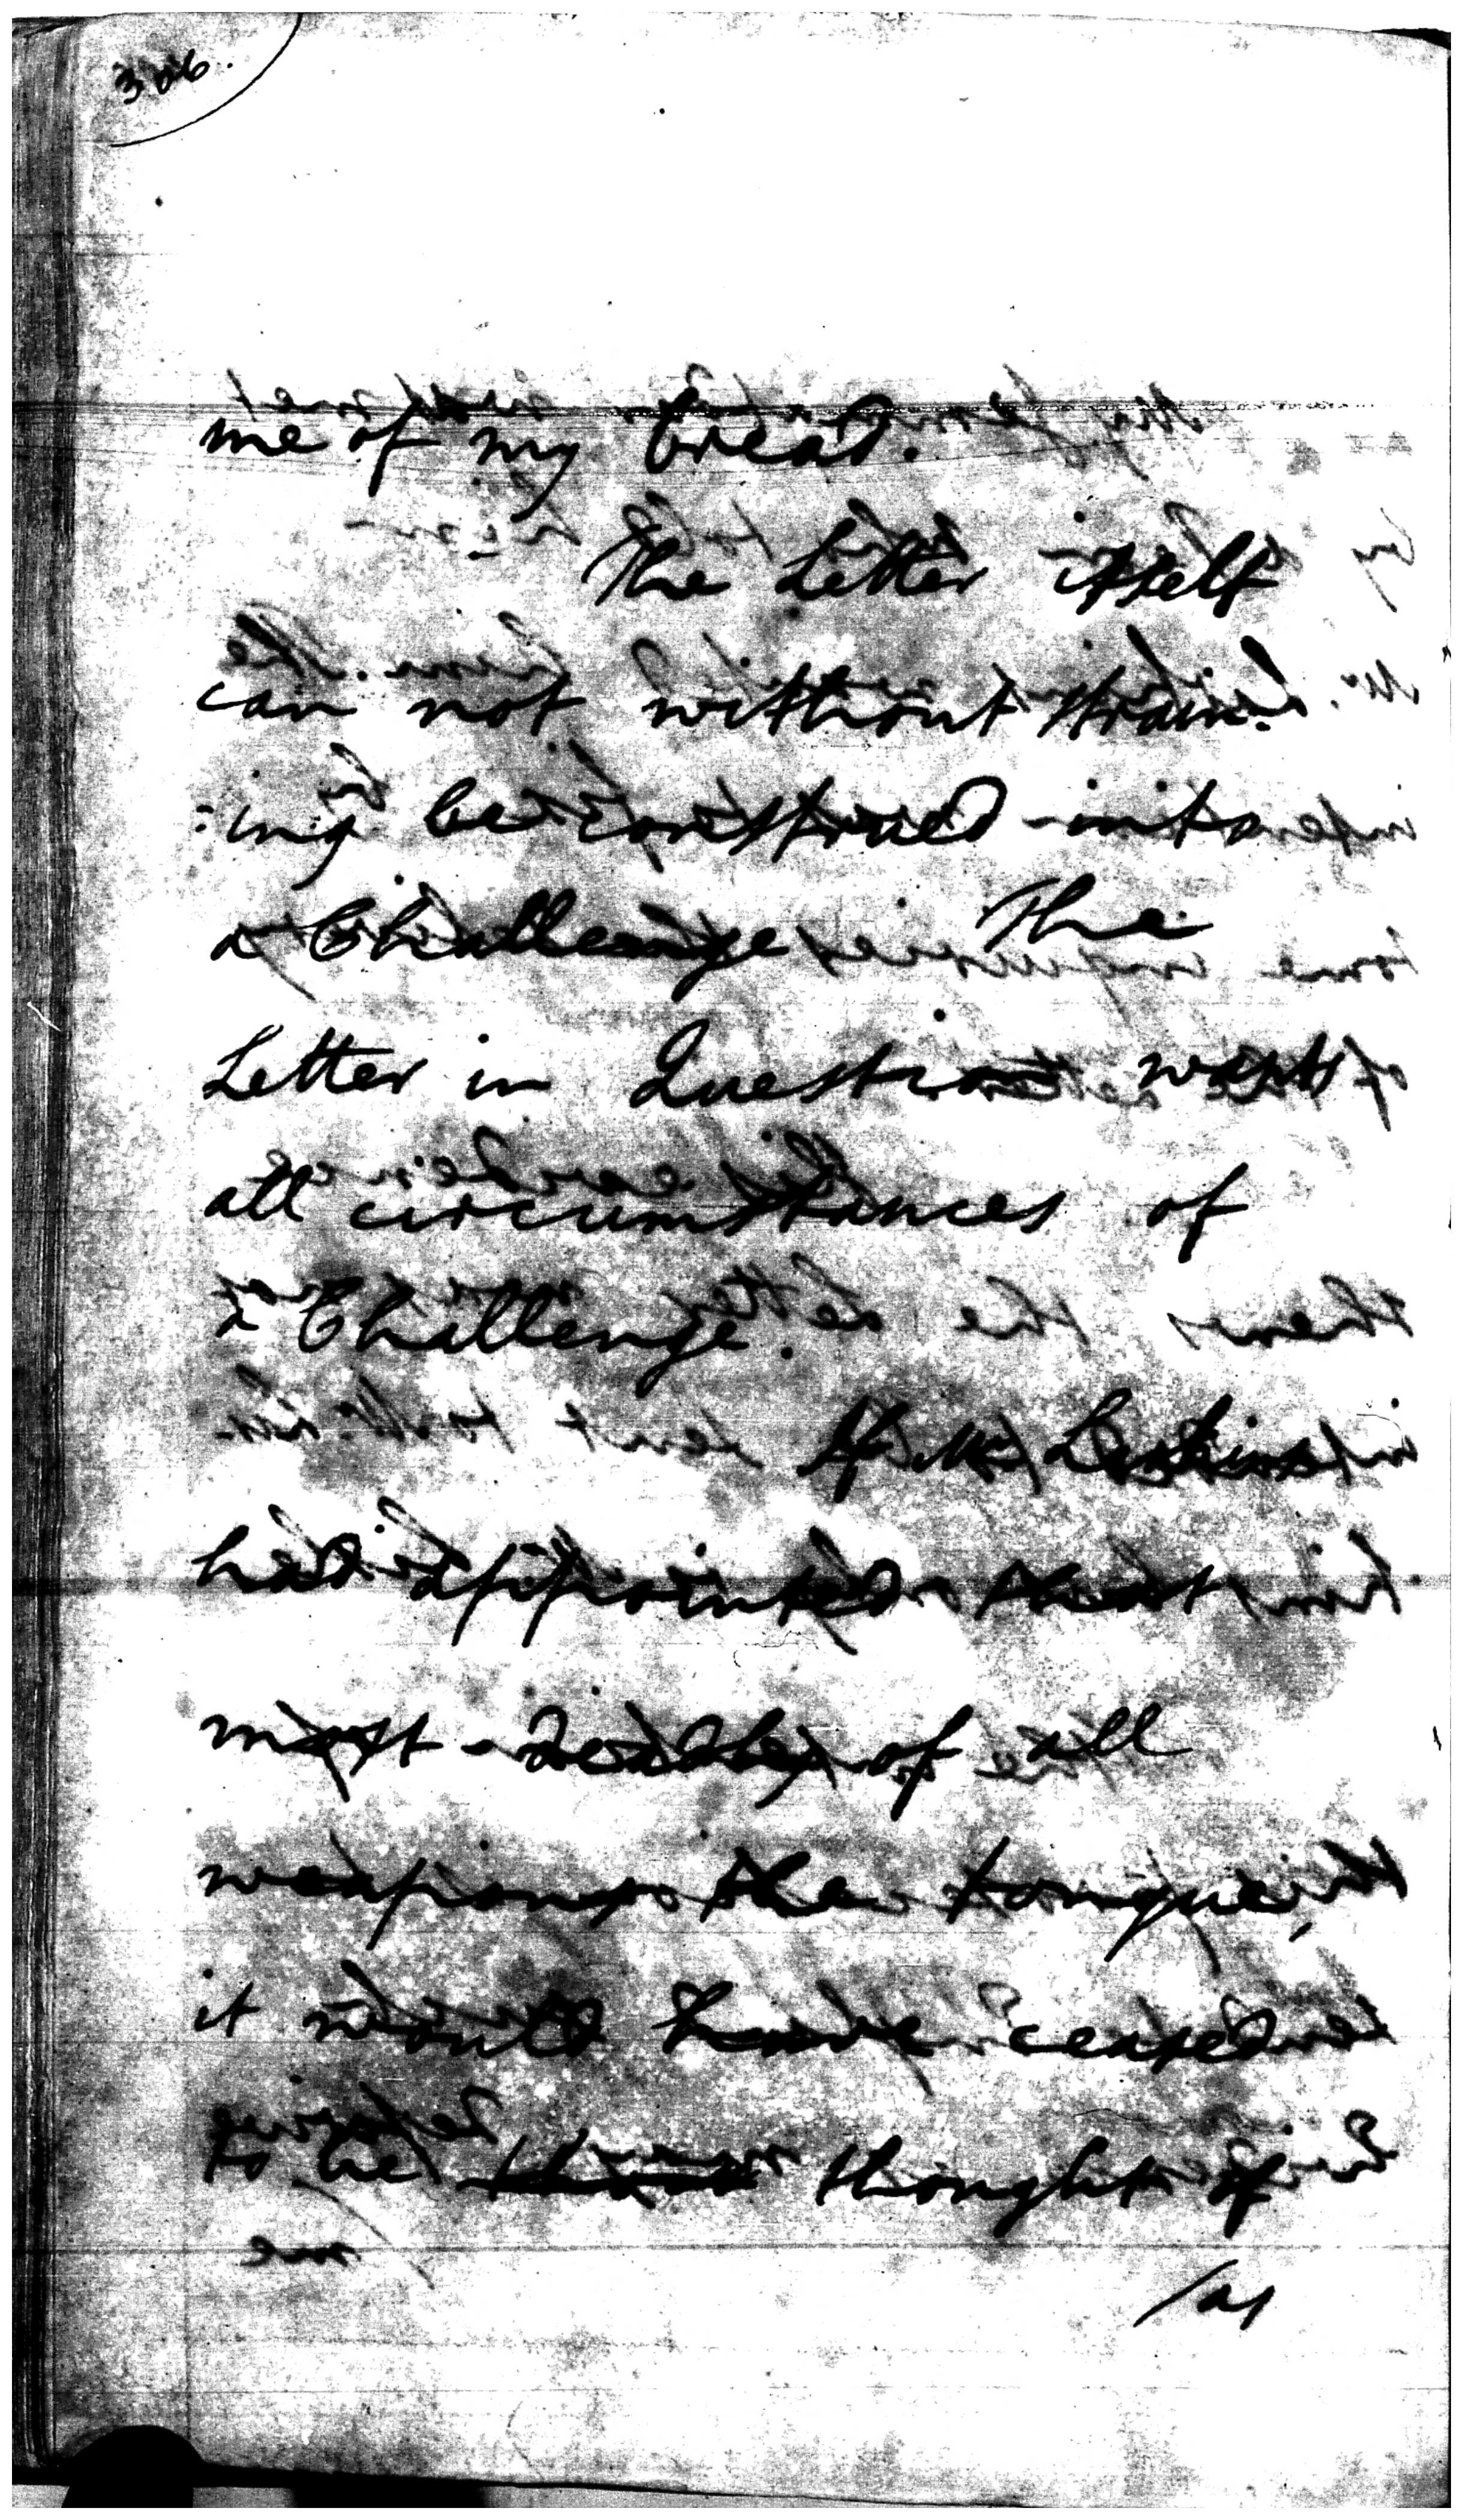 306.
me of my bread.
The Letter itself
can not without strain:
:ing be construed into
a Challenge The
Letter in Question wants
all circumstances of
a Challenge.
If Mr
had appointed that
most deadly of all
weapons the tongue,
it would have ceased
to be thought of
/as